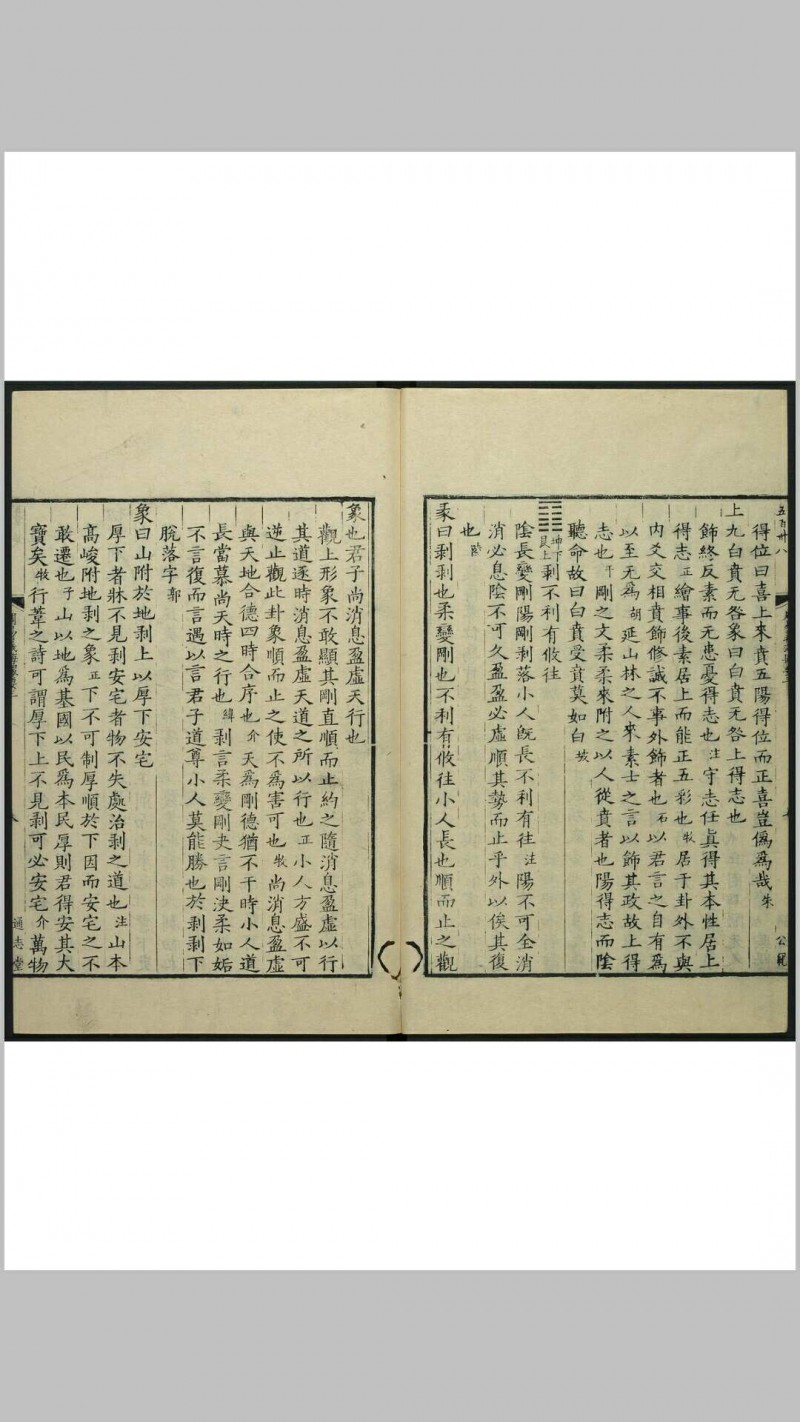 五百卅八
得位曰喜上來賁五陽得位而正喜豈僞爲哉朱
上九白賁无咎象曰白賁无咎上得志也
飾終反素而无患憂得志也注守志任真得其本性居上
得志正繪事後素居上而能正五彩也牧居于卦外不與
内爻交相賁飾修誠不事外飾者也石以君言之自有爲
以至无爲胡延山林之人來素士之言以飾其政故上得
志也干剛之文柔柔來附之以人從賁者也陽得志而陰
聽命故曰白賁受賁莫如白
坤下艮上剥不利有攸往
陰長變剛陽剛剥落小人旣長不利有往注陽不可全消
消必息陰不可久盈盈必虛順其勢而止乎外以俟其復
也陸
彖曰剥剥也柔變剛也不利有攸往小人長也順而止之觀
公範
象也君子尚消息盈虛天行也
觀上形象不敢顯其剛直順而止約之隨消息盈虛以行
其道逐時消息盈虛天道之所以行也正小人方盛不可
逆止觀此卦象順而止之使不爲害可也牧尚消息盈虛
與天地合德四時合序也介天爲剛德猶不干時小人道
長當慕尚天時之行也緯剥言柔變剛夬言剛決柔如姤
不言復而言遇以言君子道尊小人莫能勝也於剥剥下
脫落字鄭
象曰山附於地剥上以厚下安宅
厚下者牀不見剥安宅者物不失處治剥之道也注山本
高峻附地剥之象正下不可制厚順於下因而安宅之不
敢遷也子山以地爲基國以民爲本民厚則君得安其大
寶矣牧行葦之詩可謂厚下上不見剥可必安宅介萬物
通志堂